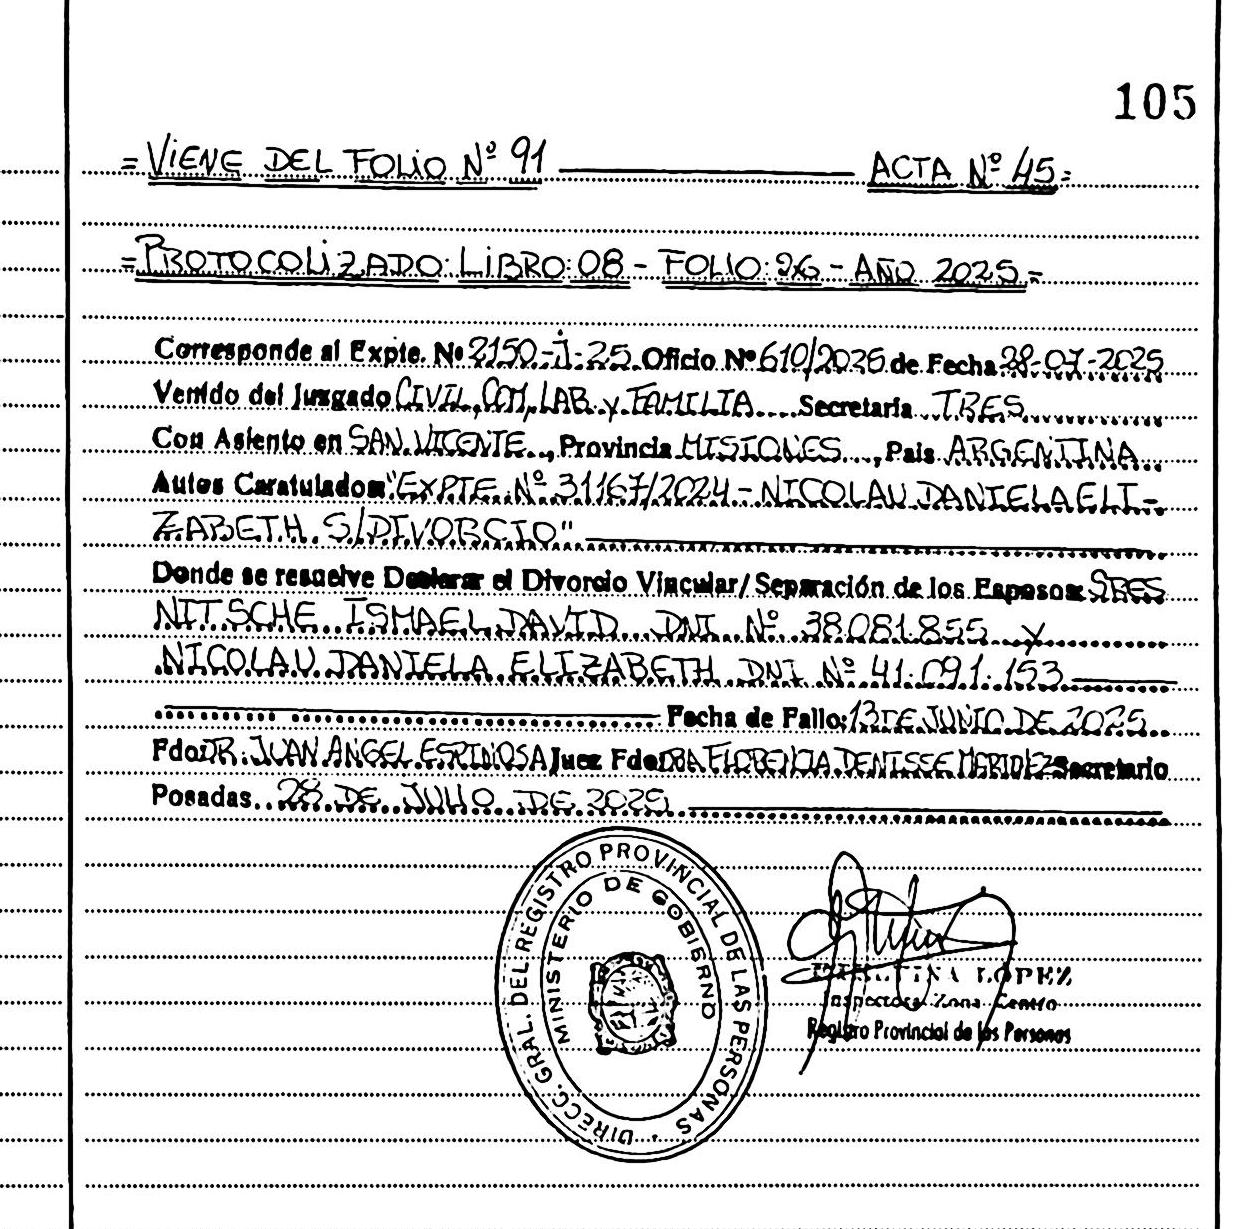 105
=VIENE DEL FOLIO Nº 91 ACTA Nº 45=
=PROTOCOLIZADO: LIBRO: 08 - FOLIO: 26 - AÑO 2025.=
Corresponde al Expte. Nº 2150-J-25 Oficio Nº 610/2025 de Fecha 28-07-2025
Venido del Juzgado CIVIL, COM, LAB. y FAMILIA.... Secretaría TRES
Con Asiento en SAN VICENTE.., Provincia MISIONES..., País ARGENTINA
Autos Caratulados "EXPTE Nº 31167/2024 - NICOLAU DANIELA ELI-
ZABETH S/DIVORCIO"
Donde se resuelve Declarar el Divorcio Vincular/ Separación de los Esposos: SRES
NITSCHE ISMAEL DAVID DNI Nº 38.081.855 y
NICOLAU DANIELA ELIZABETH DNI Nº 41.091.153
Fecha de Fallo: 13 DE JUNIO DE 2025
Fdo: DR. JUAN ANGEL ESPINOSA Juez Fdo: DRA FLORENCIA DENISSE Secretario
Posadas.. 28 DE JULIO DE 2025
DIRECC. GRAL. DEL REGISTRO PROVINCIAL DE LAS PERSONAS
MINISTERIO DE GOBIERNO
LOPEZ
Inspectora Zona Centro
Registro Provincial de las Personas